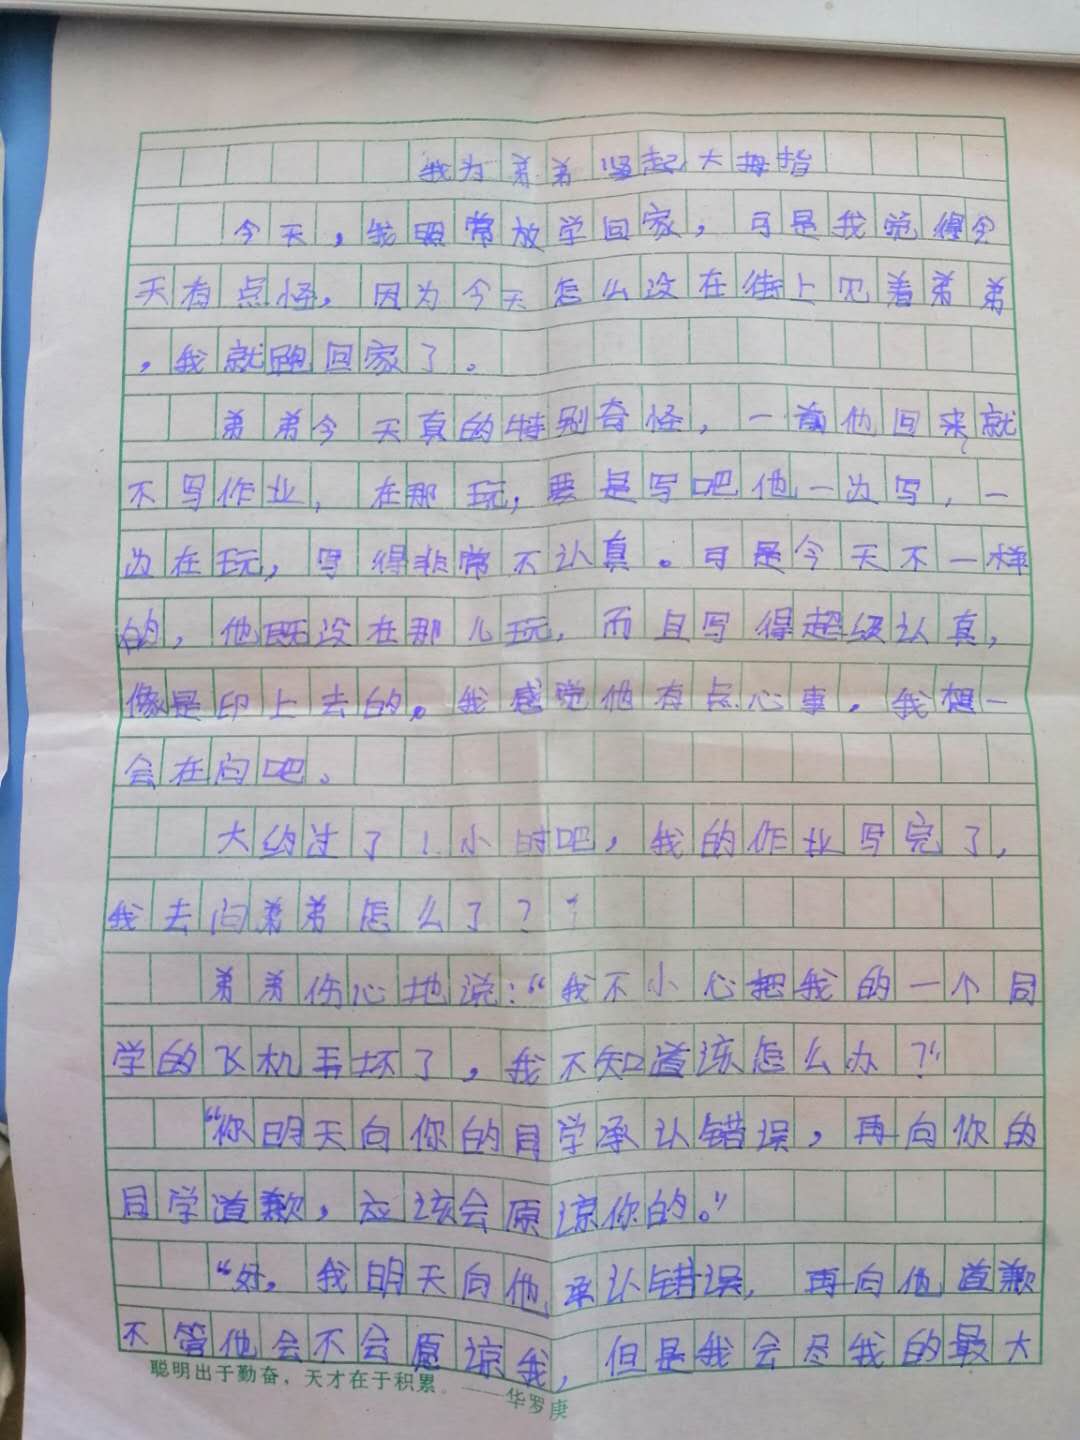 我为弟弟竖起大拇指
今天，我照常放学回家，可是我觉得今
天有点怪，因为今天怎么没在街上见着弟弟
，我就跑回家了。
弟弟今天真的特别奇怪，一前他回来就
不写作业，在那玩，要是写吧他一边写，一
边在玩，写得非常不认真。可是今天不一样
的，他既没在那儿玩，而且写得超级认真，
像是印上去的。我感觉他有点心事。我想一
会在问吧。
大约过了1小时吧，我的作业写完了，
我去问弟弟怎么了？
弟弟伤心地说：“我不小心把我的一个同
学的飞机弄坏了，我不知道该怎么办？”
“你明天向你的同学承认错误，再向你的
同学道歉，应该会原谅你的。”
“好，我明天向他承认错误，再向他道歉
不管他会不会愿谅我，但是我会尽我的最大
聪明出于勤奋，天才在于积累。——华罗庚